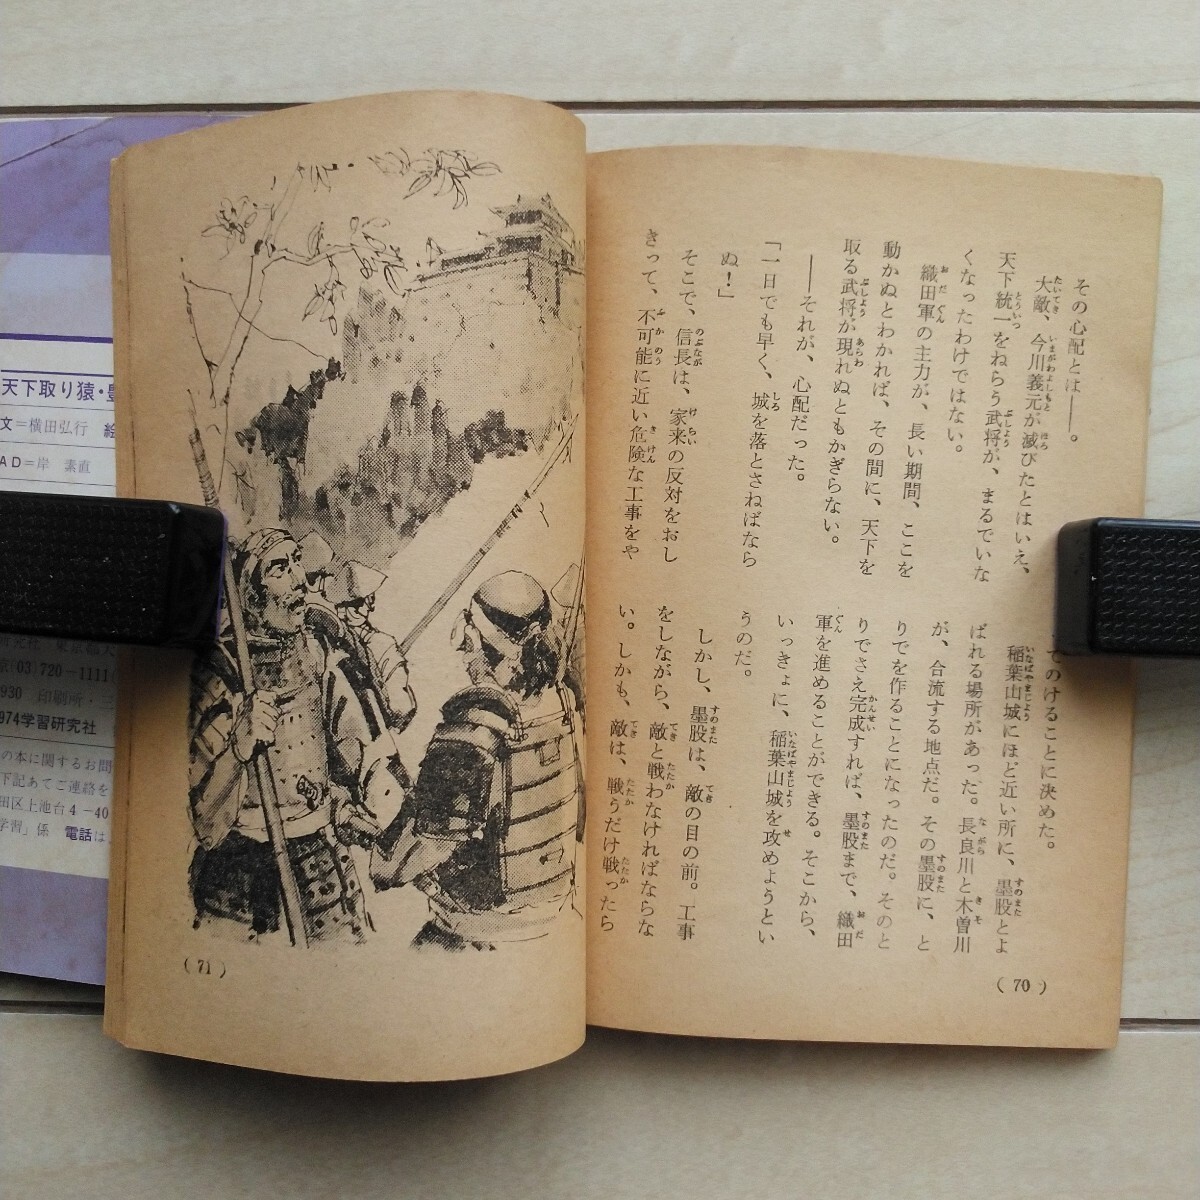 その心配とは――。
大敵、今川義元が滅びたとはいえ、
天下統一をねらう武将が、まるでいな
くなったわけではない。
織田軍の主力が、長い期間、ここを
動かぬとわかれば、その間に、天下を
取る武将が現れぬともかぎらない。
――それが、心配だった。
「一日でも早く、城を落とさねばなら
ぬ！」
そこで、信長は、家来の反対をおし
きって、不可能に近い危険な工事をや
てのけることに決めた。
稲葉山城にほど近い所に、墨股とよ
ばれる場所があった。長良川と木曽川
が、合流する地点だ。その墨股に、と
りでを作ることになったのだ。そのと
りでさえ完成すれば、墨股まで、織田
軍を進めることができる。そこから、
いっきょに、稲葉山城を攻めようとい
うのだ。
しかし、墨股は、敵の目の前。工事
をしながら、敵と戦わなければならな
い。しかも、敵は、戦うだけ戦ったら
(70)
(71)
天下取り猿・
文＝横田弘行 絵
AD＝岸 素直
研究社 東京都大
京(03)720-1111
930 印刷所・三
974学習研究社
の本に関するお問
下記あてご連絡を
田区上池台4-40
学習」係 電話は